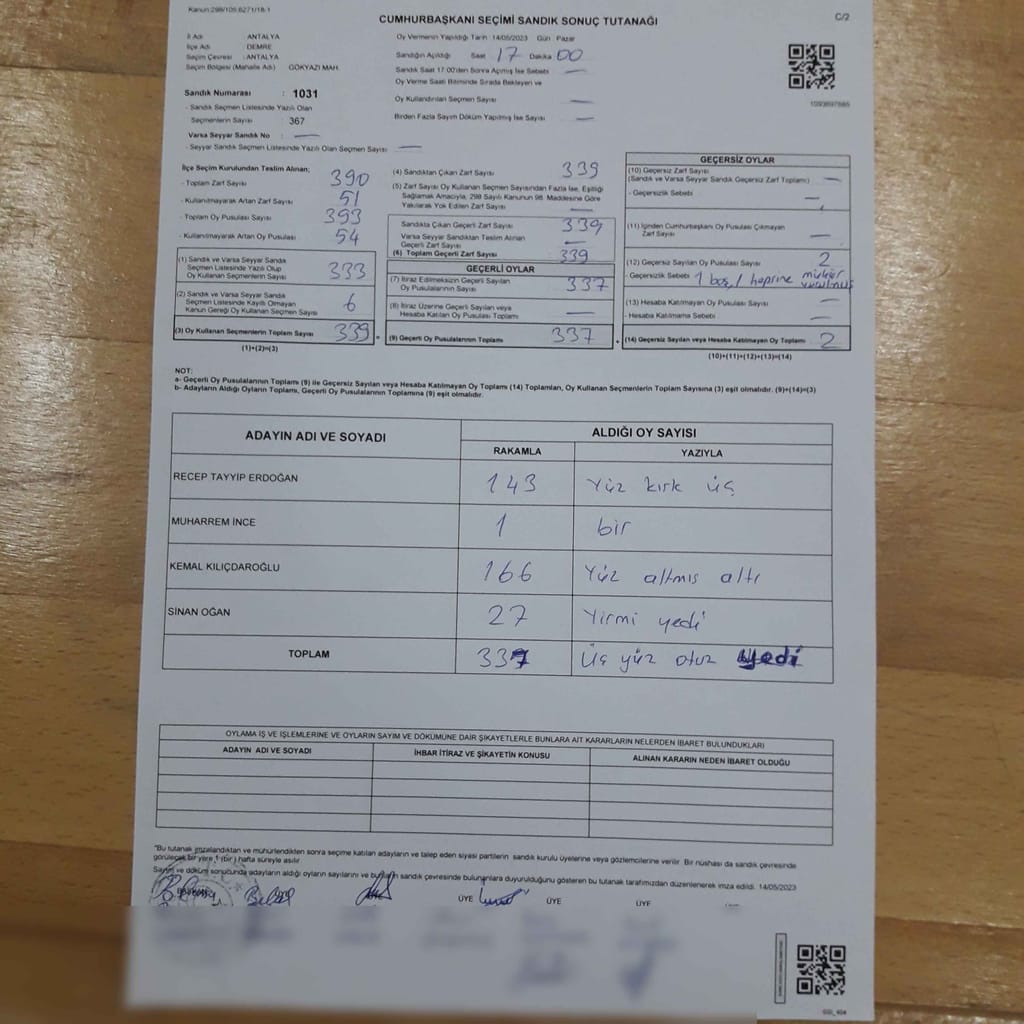 Kanun:298/105.6271/18-1
CUMHURBAŞKANI SEÇİMİ SANDIK SONUÇ TUTANAĞI
C/2
İl Adı ANTALYA
İlçe Adı DEMRE
Seçim Çevresi : ANTALYA
Seçim Bölgesi (Mahalle Adı) GÖKYAZI MAH.
Oy Vermenin Yapıldığı Tarih 14/05/2023 Gün Pazar
Sandığın Açıldığı Saat 17 Dakika 00
Sandık Saat 17:00'den Sonra Açılmış İse Sebebi —
Oy Verme Saati Bitiminde Sırada Bekleyen ve
Oy Kullandırılan Seçmen Sayısı —
Birden Fazla Sayım Döküm Yapılmış İse Sayısı —
Sandık Numarası : 1031
- Sandık Seçmen Listesinde Yazılı Olan
Seçmenlerin Sayısı : 367
Varsa Seyyar Sandık No : —
- Seyyar Sandık Seçmen Listesinde Yazılı Olan Seçmen Sayısı —
İlçe Seçim Kurulundan Teslim Alınan;
- Toplam Zarf Sayısı 390
- Kullanılmayarak Artan Zarf Sayısı 51
- Toplam Oy Pusulası Sayısı 393
- Kullanılmayarak Artan Oy Pusulası 54
(1) Sandık ve Varsa Seyyar Sandık
Seçmen Listesinde Yazılı Olup
Oy Kullanan Seçmenlerin Sayısı 333
(2) Sandık ve Varsa Seyyar Sandık
Seçmen Listesinde Kayıtlı Olmayan
Kanun Gereği Oy Kullanan Seçmen Sayısı 6
(3) Oy Kullanan Seçmenlerin Toplam Sayısı 339
(1)+(2)=(3)
(4) Sandıktan Çıkan Zarf Sayısı 339
(5) Zarf Sayısı Oy Kullanan Seçmen Sayısından Fazla İse, Eşitliği
Sağlamak Amacıyla, 298 Sayılı Kanunun 98. Maddesine Göre
Yakılarak Yok Edilen Zarf Sayısı —
Sandıkta Çıkan Geçerli Zarf Sayısı 339
Varsa Seyyar Sandıktan Teslim Alınan
Geçerli Zarf Sayısı —
(6) Toplam Geçerli Zarf Sayısı 339
GEÇERLİ OYLAR
(7) İtiraz Edilmeksizin Geçerli Sayılan
Oy Pusulası Sayısı 337
(8) İtiraz Üzerine Geçerli Sayılan veya
Hesaba Katılan Oy Pusulası Toplamı —
(9) Geçerli Oy Pusulalarının Toplamı 337
GEÇERSİZ OYLAR
(10) Geçersiz Zarf Sayısı
(Sandık ve Varsa Seyyar Sandık Geçersiz Zarf Toplamı) —
- Geçersizlik Sebebi —
(11) İçinden Cumhurbaşkanı Oy Pusulası Çıkmayan
Zarf Sayısı —
(12) Geçersiz Sayılan Oy Pusulası Sayısı 2
- Geçersizlik Sebebi 1 boş, 1 hepsine mühür vurulmuş
(13) Hesaba Katılmayan Oy Pusulası Sayısı —
- Hesaba Katılmama Sebebi —
(14) Geçersiz Sayılan veya Hesaba Katılmayan Oy Toplamı 2
(10)+(11)+(12)+(13)=(14)
NOT:
a- Geçerli Oy Pusulalarının Toplamı (9) ile Geçersiz Sayılan veya Hesaba Katılmayan Oy Toplamı (14) Toplamları, Oy Kullanan Seçmenlerin Toplam Sayısına (3) eşit olmalıdır. (9)+(14)=(3)
b- Adayların Aldığı Oyların Toplamı, Geçerli Oy Pusulalarının Toplamına (9) eşit olmalıdır.
ADAYIN ADI VE SOYADI ALDIĞI OY SAYISI
RAKAMLA YAZIYLA
RECEP TAYYİP ERDOĞAN 143 Yüz kırk üç
MUHARREM İNCE 1 bir
KEMAL KILIÇDAROĞLU 166 Yüz altmıs altı
SİNAN OĞAN 27 Yirmi yedi
TOPLAM 337 Üç yüz otuz yedi
OYLAMA İŞ VE İŞLEMLERİNE VE OYLARIN SAYIM VE DÖKÜMÜNE DAİR ŞİKAYETLERLE BUNLARA AİT KARARLARIN NELERDEN İBARET BULUNDUKLARI
ADAYIN ADI VE SOYADI İHBAR İTİRAZ VE ŞİKAYETİN KONUSU ALINAN KARARIN NEDEN İBARET OLDUĞU
"Bu tutanak imzalandıktan ve mühürlendikten sonra seçime katılan adayların ve talep eden siyasi partilerin sandık kurulu üyelerine veya gözlemcilerine verilir. Bir nüshası da sandık çevresinde
görülecek bir yere 1 (bir) hafta süreyle asılır.
Sayım ve döküm sonucunda adayların aldığı oyların sayılarını ve bunların sandık çevresinde bulunanlara duyurulduğunu gösteren bu tutanak tarafımızdan düzenlenerek imza edildi. 14/05/2023
ÜYE ÜYE ÜYE